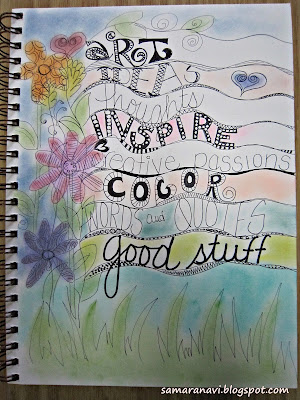 ART
IDEAS
thoughts
INSPIRE
creative passions
COLOR
WORDS and QUOTES
good stuff
samaranavi.blogspot.com